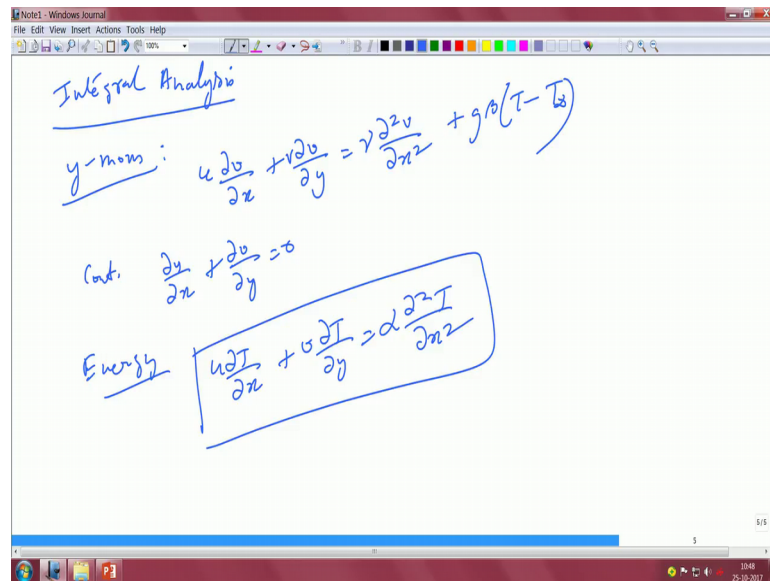 Note1 - Windows Journal
File Edit View Insert Actions Tools Help
100%
B I
Integral Analysis
y-mom: u ∂v/∂x + v ∂v/∂y = ν ∂²v/∂x² + gβ(T - T∞)
Cont. ∂u/∂x + ∂v/∂y = 0
Energy u ∂T/∂x + v ∂T/∂y = α ∂²T/∂x²
5/5
5
10:48
25-10-2017